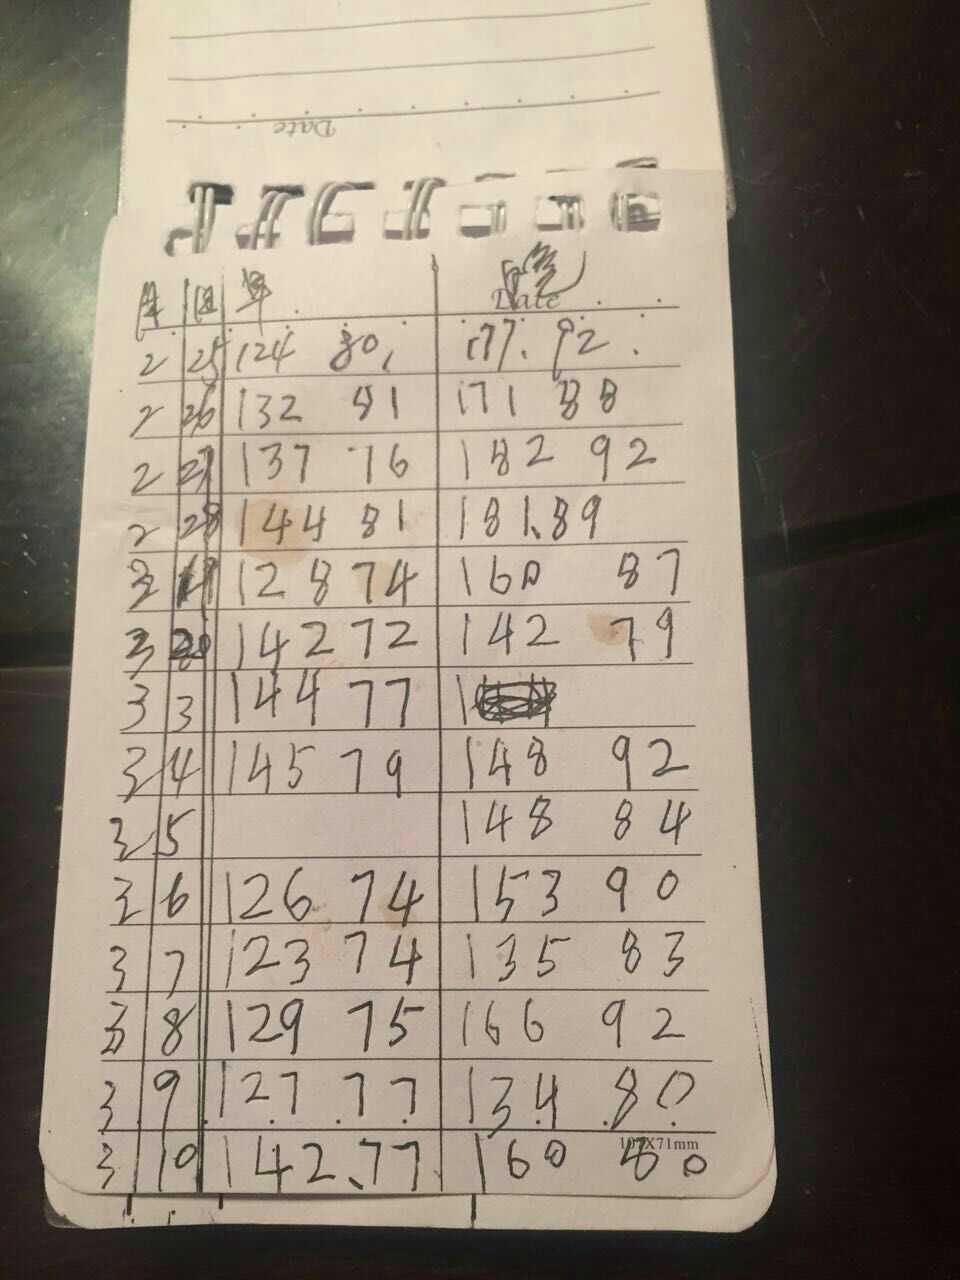 Date
月 日 早 晚
Date
2 25 124 80, 177. 92.
2 26 132 81 171 88
2 27 137 76 182 92
2 28 144 81 181.89
3 128 74 160 87
3 142 72 142 79
3 3 144 77 1
3 4 145 79 148 92
3 5 148 84
3 6 126 74 153 90
3 7 123 74 135 83
3 8 129 75 166 92
3 9 127 77 134 80
3 10 142.77 160 80